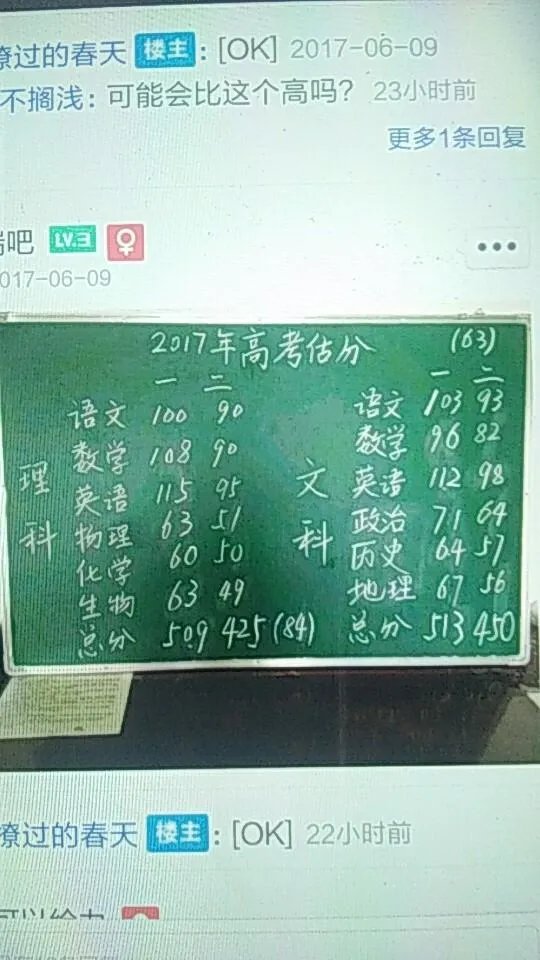 撩过的春天 楼主 : [OK] 2017-06-09
不搁浅: 可能会比这个高吗? 23小时前
更多1条回复
吧 LV.3
2017-06-09
2017年高考估分 (63)
理科
一 二
语文 100 90
数学 108 90
英语 115 95
物理 63 51
化学 60 50
生物 63 49
总分 509 425 (84)
文科
一 二
语文 103 93
数学 96 82
英语 112 98
政治 71 64
历史 64 57
地理 67 56
总分 513 450
撩过的春天 楼主 : [OK] 22小时前